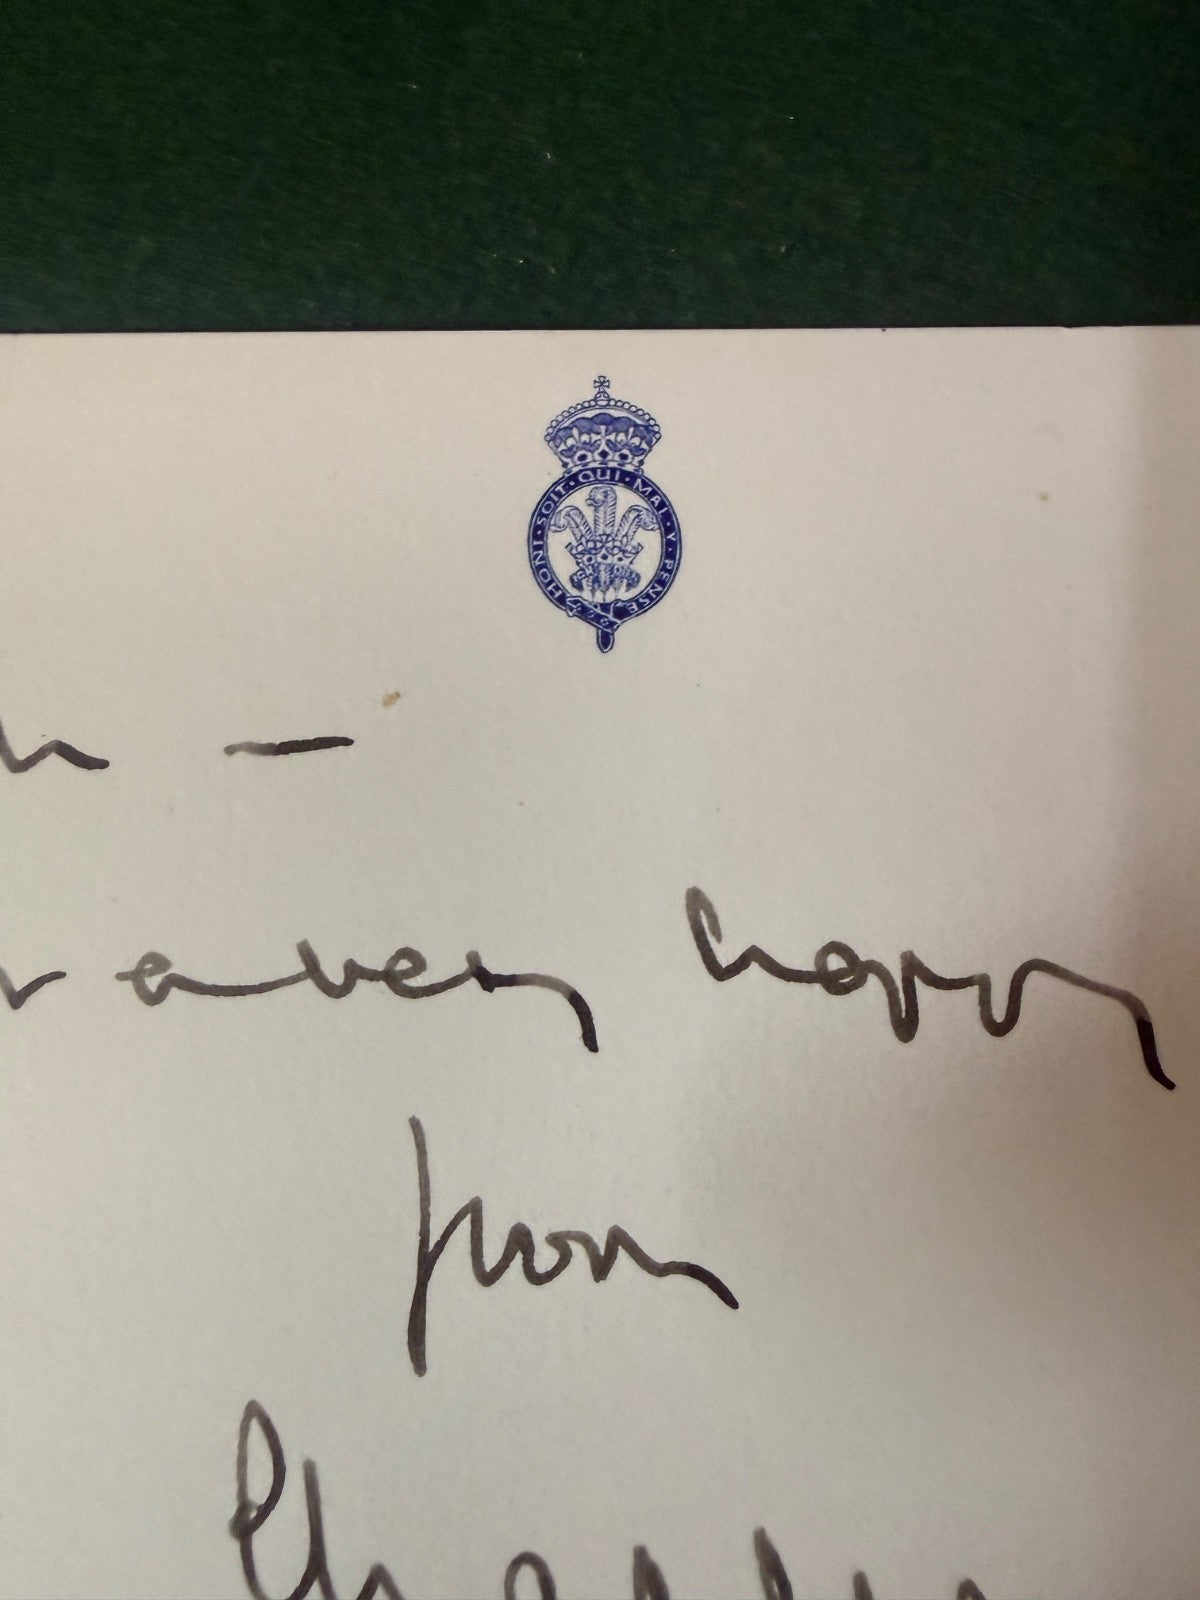 HONI · SOIT · QUI · MAL · Y · PENSE
ICH DIEN
–
a very happy
from
Charles